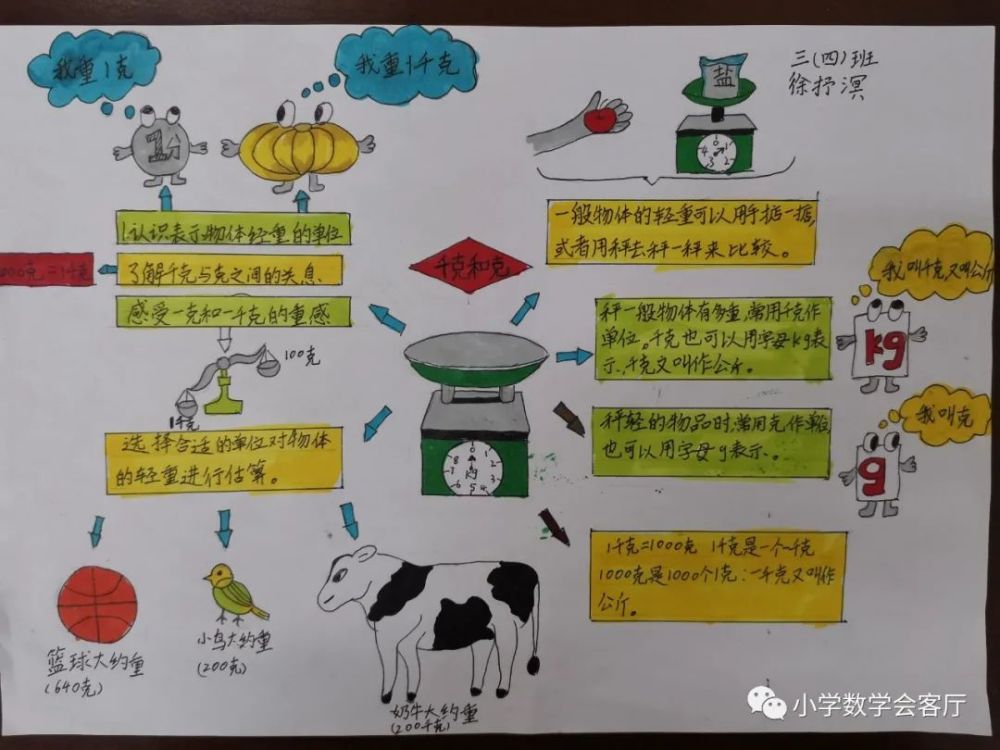 我重1克
我重1千克
盐
三(四)班
徐抒溟
1分
1.认识表示物体轻重的单位
了解千克与克之间的关息
感受一克和一千克的重感
00克=1千克
千克和克
一般物体的轻重可以用手掂一掂,
或者用秤去秤一秤来比较。
我叫千克又叫公斤
秤一般物体有多重,常用千克作
单位。千克也可以用字母kg表
示,千克又叫作公斤。
kg
100克
1千克
我叫克
秤轻的物品时,常用克作单位
也可以用字母g表示、。
g
选择合适的单位对物体
的轻重进行估算。
1千克=1000克 1千克是一个一千克
1000克是1000个1克:一千克又叫作
公斤。
篮球大约重
(640克)
小鸟大约重
(200克)
奶牛大约重
(200千克)
小学数学会客厅